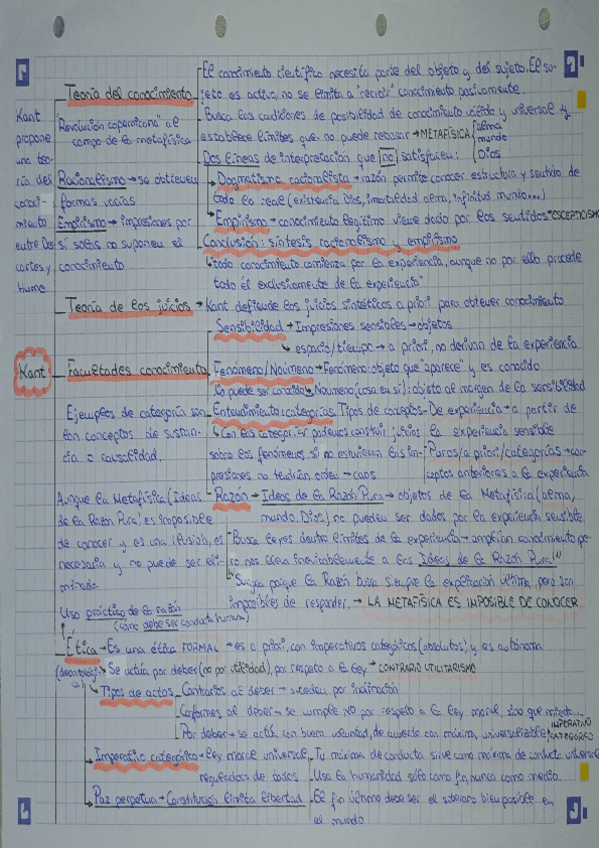 El conocimiento científico necesita parte del objeto y del sujeto. El su-
Teoría del conocimiento
jeto es activo, no se limita a "recibir" conocimiento pasivamente.
Kant
propone
una teo-
ría del
conoci-
miento
entre Des
cartes y
Hume
Revolución copernicana" al
campo de la metafísica
Busca las condiciones de posibilidad de conocimiento válido y universal y
establece límites que no puede rebasar → METAFÍSICA
alma
mundo
Dios
Dos líneas de interpretación que no satisfacen:
Racionalismo → se obtienen
formas vacías
Empirismo → impresiones por
sí solas no suponen el
conocimiento
Dogmatismo racionalista → razón permite conocer estructura y sentido de
todo lo real (existencia Dios, inmortalidad alma, infinitud mundo...)
Empirismo → conocimiento legítimo viene dado por los sentidos → ESCEPTICISMO
Conclusión: síntesis racionalismo y empirismo
"todo conocimiento comienza por la experiencia, aunque no por ello procede
todo él exclusivamente de la experiencia"
Teoría de los juicios → Kant defiende los juicios sintéticos a priori para obtener conocimiento
Kant
Facultades conocimiento
Sensibilidad → Impresiones sensibles → objetos
espacio/tiempo → a priori, no derivan de la experiencia
Fenómeno/Noúmeno → Fenómeno: objeto que "aparece" y es conocido
No puede ser conocido ← Noúmeno (cosa en sí): objeto al margen de la sensibilidad
Ejemplos de categoría son
los conceptos de sustan-
cia o causalidad.
Entendimiento: categorías. Tipos de conceptos - De experiencia → a partir de
la experiencia sensible
Con las categorías podemos construir juicios
sobre los fenómenos, si no estuvieran las im-
presiones no tendrían orden → caos
Puros/a priori/categorías → con-
ceptos anteriores a la experiencia
Aunque la Metafísica (Ideas
de la Razón Pura) es imposible
de conocer y es una ilusión, es
necesaria y no puede ser eli-
minada
Razón → Ideas de la Razón Pura → objetos de la Metafísica (alma,
mundo, Dios), no pueden ser dados por la experiencia sensible
Busca leyes dentro límites de la experiencia → amplían conocimiento pe-
ro nos llevan inevitablemente a las Ideas de la Razón Pura
Surgen porque la Razón busca siempre la explicación última, pero son
imposibles de responder. → LA METAFÍSICA ES IMPOSIBLE DE CONOCER
Uso práctico de la razón
(cómo debe ser conducta humana)
Ética → Es una ética FORMAL → es a priori, con imperativos categóricos (absolutos), y es autónoma
(deontológica) → Se actúa por deber (no por utilidad), por respeto a la ley → CONTRARIO UTILITARISMO
Tipos de actos
Contrarios al deber → suceden por inclinación
Conformes al deber → se cumple NO por respeto a la ley moral, sino por miedo...
Por deber → se actúa con buena voluntad, de acuerdo con máxima, universalizable
IMPERATIVO
CATEGÓRICO
Imperativo categórico → ley moral universal,
reguladora de todos
Tu máxima de conducta sirve como máxima de conducta universal
Usa la humanidad sólo como fin, nunca como medio.
Paz perpetua → Constitución limita libertad
El fin último debe ser el soberano bien posible en
el mundo